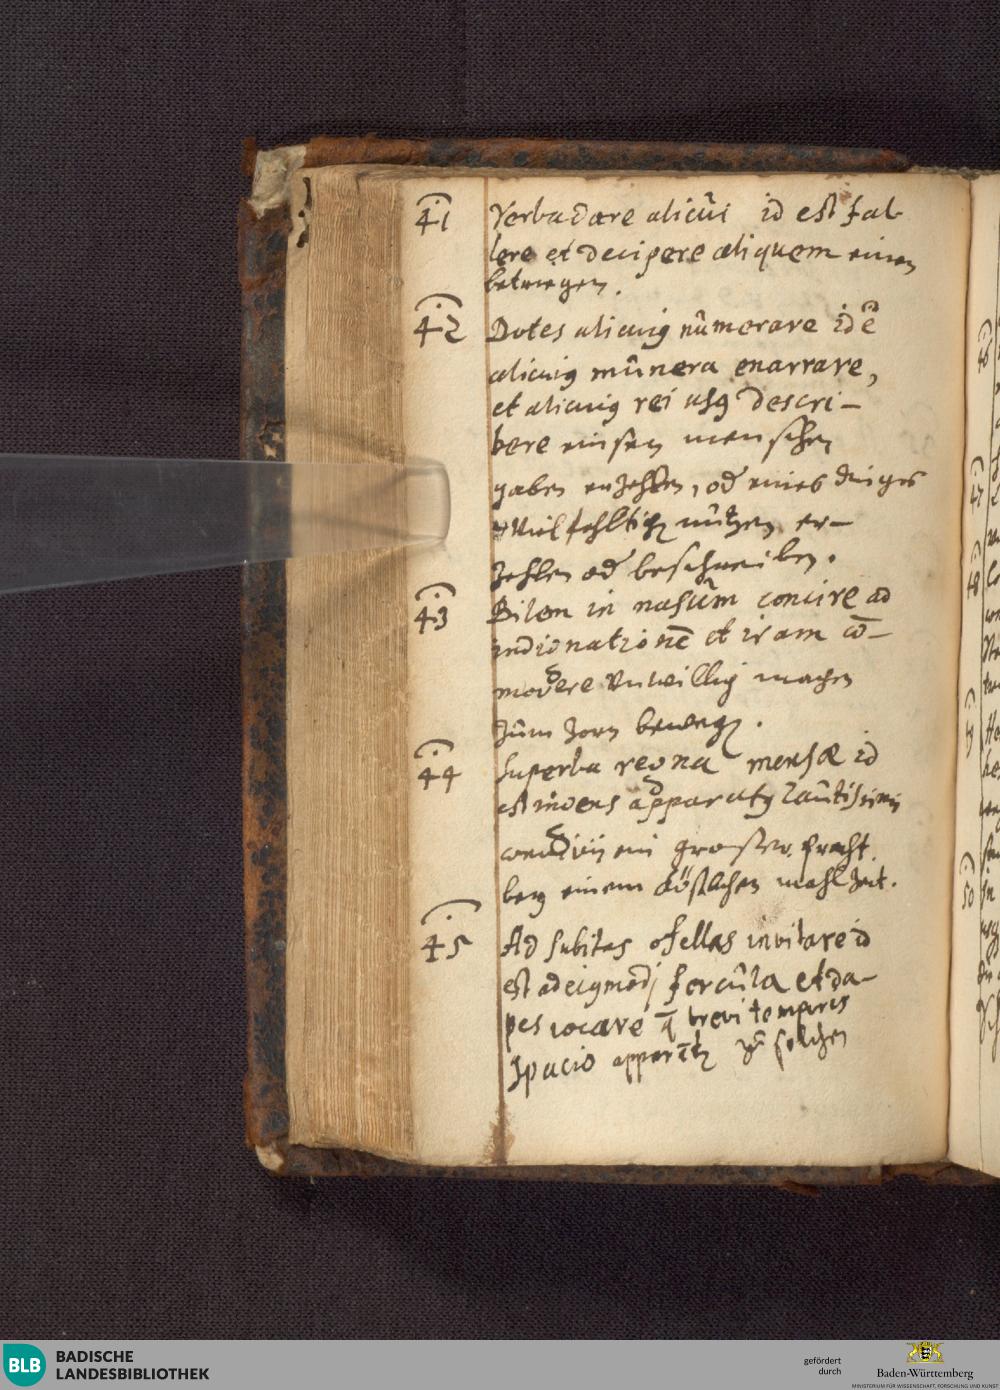 41 Verba dare alicui id est fal-
lere et decipere aliquem einen
betriegen.
42 Dotes alicuiꝰ numerare id ē
alicuiꝰ munera enarrare,
et alicuiꝰ rei usꝰ descri-
bere einsen menschen
gaben erzehlen, od eines dinges
Vielfehltich nutzen er-
zehlen od beschreiben.
43 Bilem in nasum concire ad
indignationē et iram cō-
movere Unwillig machen
zum zorn bewegen.
44 Superba regna mensæ id
est ingens apparatꝰ lautissimi
convivij ein grosser pracht
bey einem köstlichen mahlzeit.
45 Ad subitas ofellas invitare id
est ad eiꝰmodj fercula et da-
pes vocare q̄ brevi temporis
spacio zu solchen
46
47
48
50
BLB BADISCHE
LANDESBIBLIOTHEK
gefördert
durch
Baden-Württemberg
MINISTERIUM FÜR WISSENSCHAFT, FORSCHUNG UND KUNST